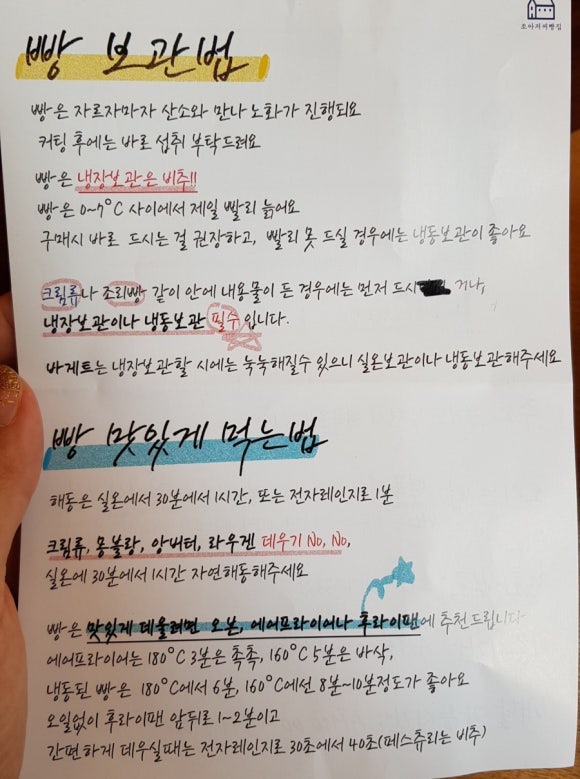 소아저씨빵집
빵 보관법
빵은 자르자마자 산소와 만나 노화가 진행되요
커팅 후에는 바로 섭취 부탁드려요
빵은 냉장보관은 비추!!
빵은 0~7°C 사이에서 제일 빨리 늙어요
구매시 바로 드시는 걸 권장하고, 빨리 못 드실 경우에는 냉동보관이 좋아요
크림류나 조리빵 같이 안에 내용물이 든 경우에는 먼저 드시 거나,
냉장보관이나 냉동보관 필수 입니다.
바게트는 냉장보관할 시에는 눅눅해질수 있으니 실온보관이나 냉동보관해주세요
빵 맛있게 먹는법
해동은 실온에서 30분에서 1시간, 또는 전자레인지로 1분
크림류, 몽블랑, 앙버터, 라우겐 데우기 No, No,
실온에 30분에서 1시간 자연해동해주세요
빵은 맛있게 데울려면 오븐, 에어프라이어나 후라이팬에 추천드립니다
에어프라이어는 180°C 3분은 촉촉, 160°C 5분은 바삭,
냉동된 빵은 180°C에서 6분, 160°C에선 8분~10분정도가 좋아요
오일없이 후라이팬 앞뒤로 1~2분이고
간편하게 데우실때는 전자레인지로 30초에서 40초(페스츄리는 비추)